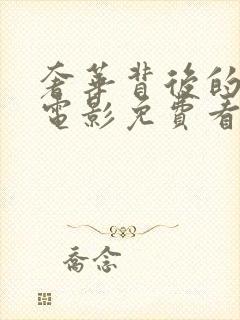 奢華背後的
電影免費看
喬念